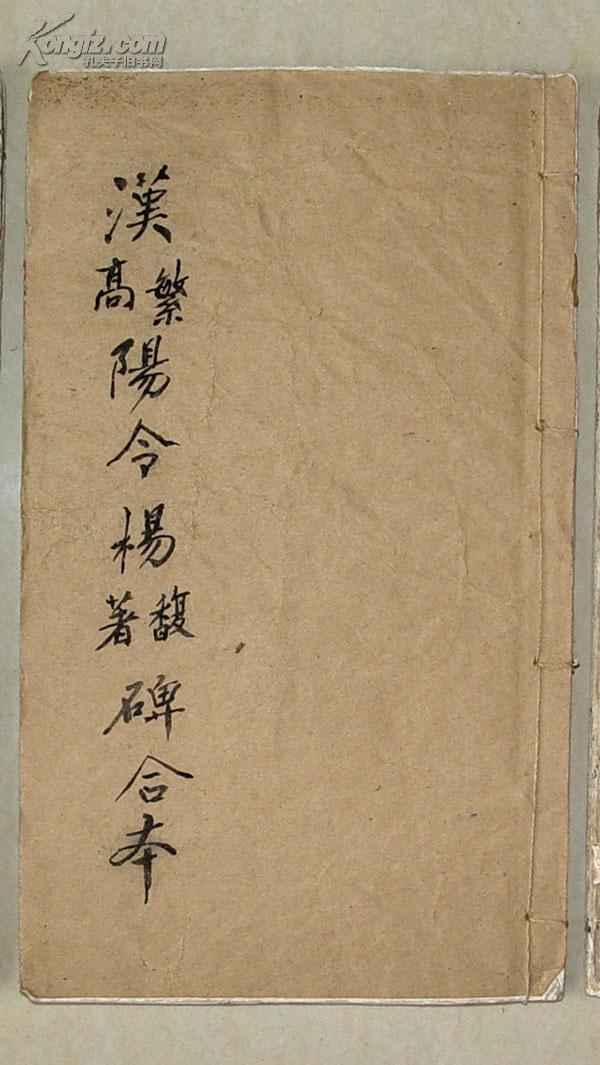 Kongfz.com
孔夫子旧书网
漢繁高陽令楊馥著碑合本